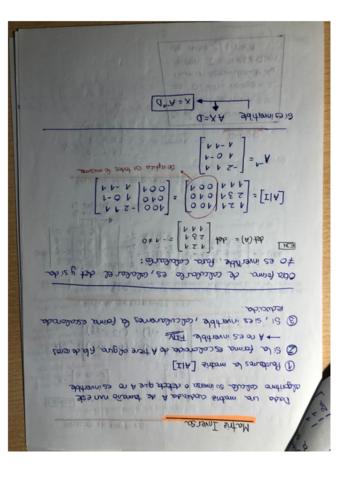 Matriz Inversa
Dada una matriz cuadrada A de tamaño nxn este
algoritmo calcula su inversa o detecta que A no es invertible
① Ponemos la matriz [A|I]
② Si la forma escalonada de A tiene alguna fila de ceros
→ A no es invertible FIN
③ Si, si es invertible, calcularemos la forma escalonada
reducida.
Otra forma de calcularlo es, calcular el det y si da
≠0 es invertible para calcularla:
EJ:
det (A) = det [1 2 1
2 3 1
1 1 1] = -1 ≠ 0
[A|I] = [1 2 1 | 1 0 0
2 3 1 | 0 1 0
1 1 1 | 0 0 1] = [1 0 0 | -2 1 1
0 1 0 | 1 0 -1
0 0 1 | 1 -1 1]
Se aplica en todos lo mismo
A⁻¹ = [-2 1 1
1 0 -1
1 -1 1]
Si es invertible AX=D
X=A⁻¹D